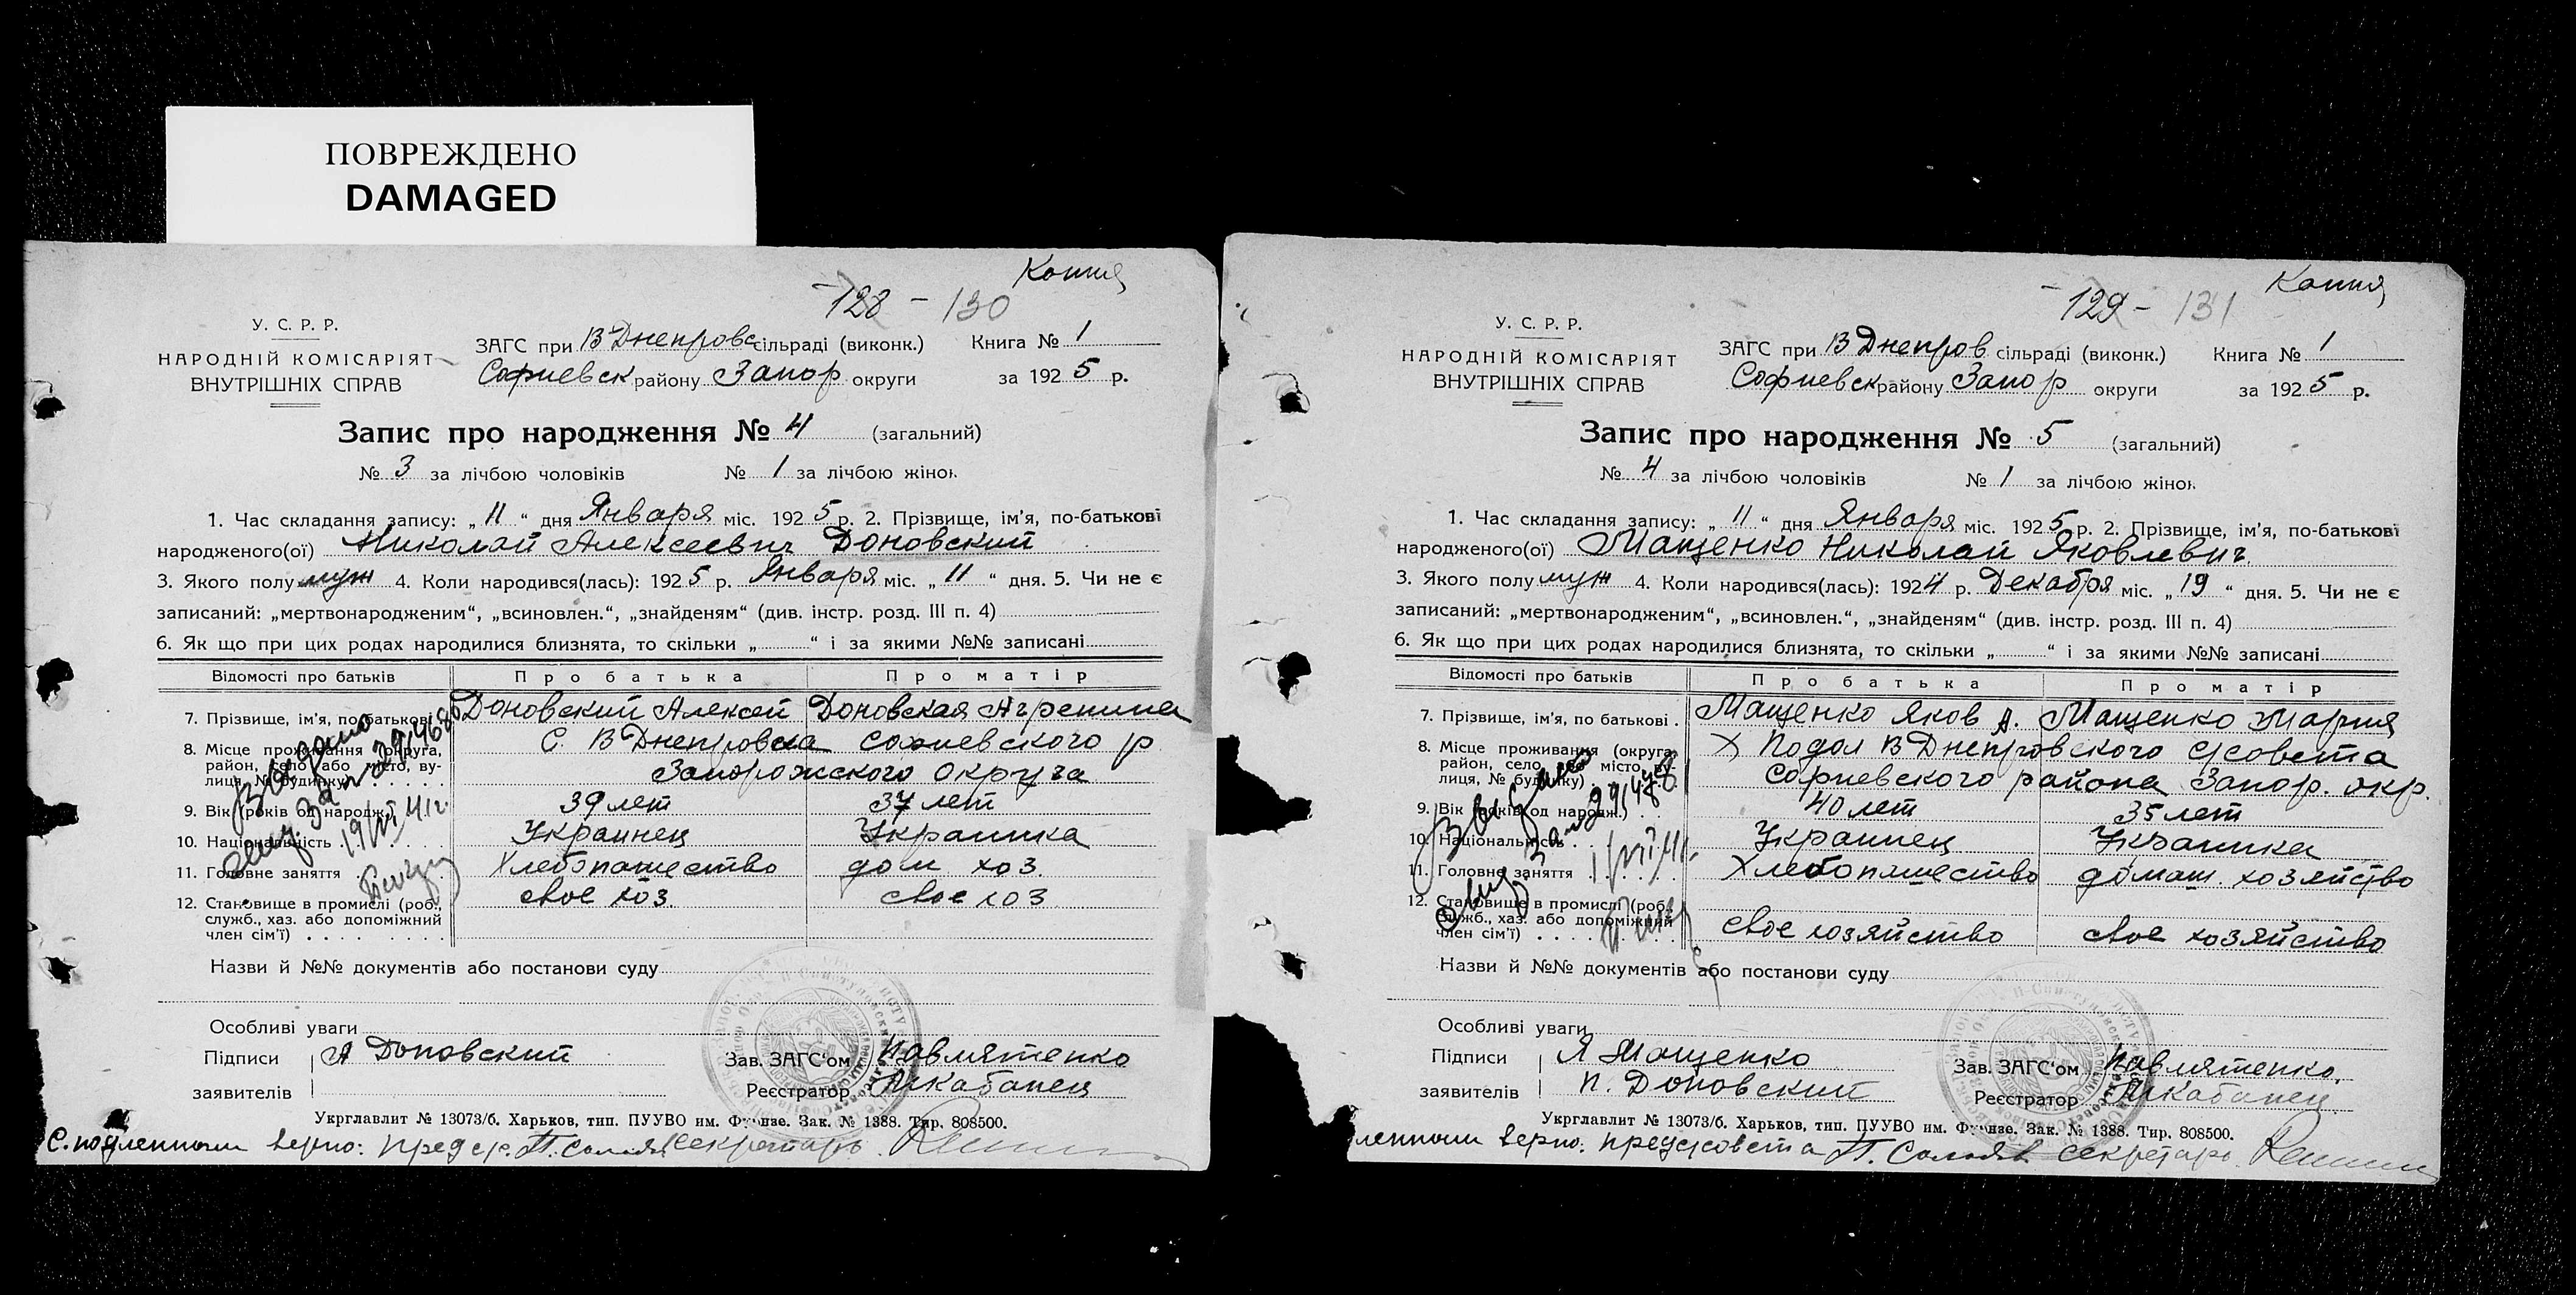 ПОВРЕЖДЕНО
DAMAGED
Копия
128 - 130
У. С. Р. Р.
НАРОДНІЙ КОМІСАРІЯТ
ВНУТРІШНІХ СПРАВ
ЗАГС при В Днепровс сільраді (виконк.) Книга № 1
Софиевск району Запор округи за 1925 р.
Запис про народження № 4 (загальний)
№ 3 за лічбою чоловіків № 1 за лічбою жінок
1. Час складання запису: „ 11 “ дня Января міс. 1925 р. 2. Прізвище, ім’я, по-батькові
народженого(ої) Николай Алексеевич Доновский
3. Якого полу муж 4. Коли народився(лась): 1925 р. Января міс. „ 11 “ дня. 5. Чи не є
записаний: „мертвонародженим“, „всиновлен.“, „знайденям“ (див. інстр. розд. III п. 4)
6. Як що при цих родах народилися близнята, то скільки „ “ і за якими №№ записані
Відомості про батьків Про батька Про матір
7. Прізвище, ім’я, по батькові Доновский Алексей Доновская Агрепина
8. Місце проживання (округа, С. В Днепровка Софиевского р
район, село або місто, ву-
лиця, № будинку) Запорожского округа
9. Вік (років од народж.) 39 лет 37 лет
10. Національність Украинец Украинка
11. Головне заняття Хлебопашество дом хоз.
12. Становище в промислі (роб., свое хоз. свое хоз
служб., хаз. або допоміжний
член сім’ї)
Выдано
19/VI 41 г.
Назви й №№ документів або постанови суду
Особливі уваги
Підписи А Доновский Зав. ЗАГС‘ом Павлятенко
заявителів Реєстратор Шкабанец
Укрглавлит № 13073/б. Харьков, тип. ПУУВО им. Фрунзе. Зак. № 1388. Тир. 808500.
С подленным верно: пред с/с. секретарь
Копия
129 - 131
У. С. Р. Р.
НАРОДНІЙ КОМІСАРІЯТ
ВНУТРІШНІХ СПРАВ
ЗАГС при В Днепров сільраді (виконк.) Книга № 1
Софиевск району Запор округи за 1925 р.
Запис про народження № 5 (загальний)
№ 4 за лічбою чоловіків № 1 за лічбою жінок
1. Час складання запису: „ 11 “ дня Января міс. 1925 р. 2. Прізвище, ім’я, по-батькові
народженого(ої) Мащенко Николай Яковлевич.
3. Якого полу муж 4. Коли народився(лась): 1924 р. Декабря міс. „ 19 “ дня. 5. Чи не є
записаний: „мертвонародженим“, „всиновлен.“, „знайденям“ (див. інстр. розд. III п. 4)
6. Як що при цих родах народилися близнята, то скільки „ “ і за якими №№ записані
Відомості про батьків Про батька Про матір
7. Прізвище, ім’я, по батькові Мащенко Яков А. Мащенко Мария
8. Місце проживання (округа, Х Подол В Днепровского с/совета
район, село або місто, ву-
лиця, № будинку) Софиевского района Запор. окр.
9. Вік (років од народж.) 40 лет 35 лет
10. Національність Украинец Украинка
11. Головне заняття Хлебопашество домаш. хозяйство
12. Становище в промислі (роб.,
служб., хаз. або допоміжний свое хозяйство свое хозяйство
член сім’ї)
Выдано
Назви й №№ документів або постанови суду
Особливі уваги
Підписи Я Мащенко Зав. ЗАГС‘ом Павлятенко.
заявителів П. Доновский Реєстратор Шкабанец
Укрглавлит № 13073/б. Харьков, тип. ПУУВО им. Фрунзе. Зак. № 1388. Тир. 808500.
ленным верно: пред с/совета секретарь